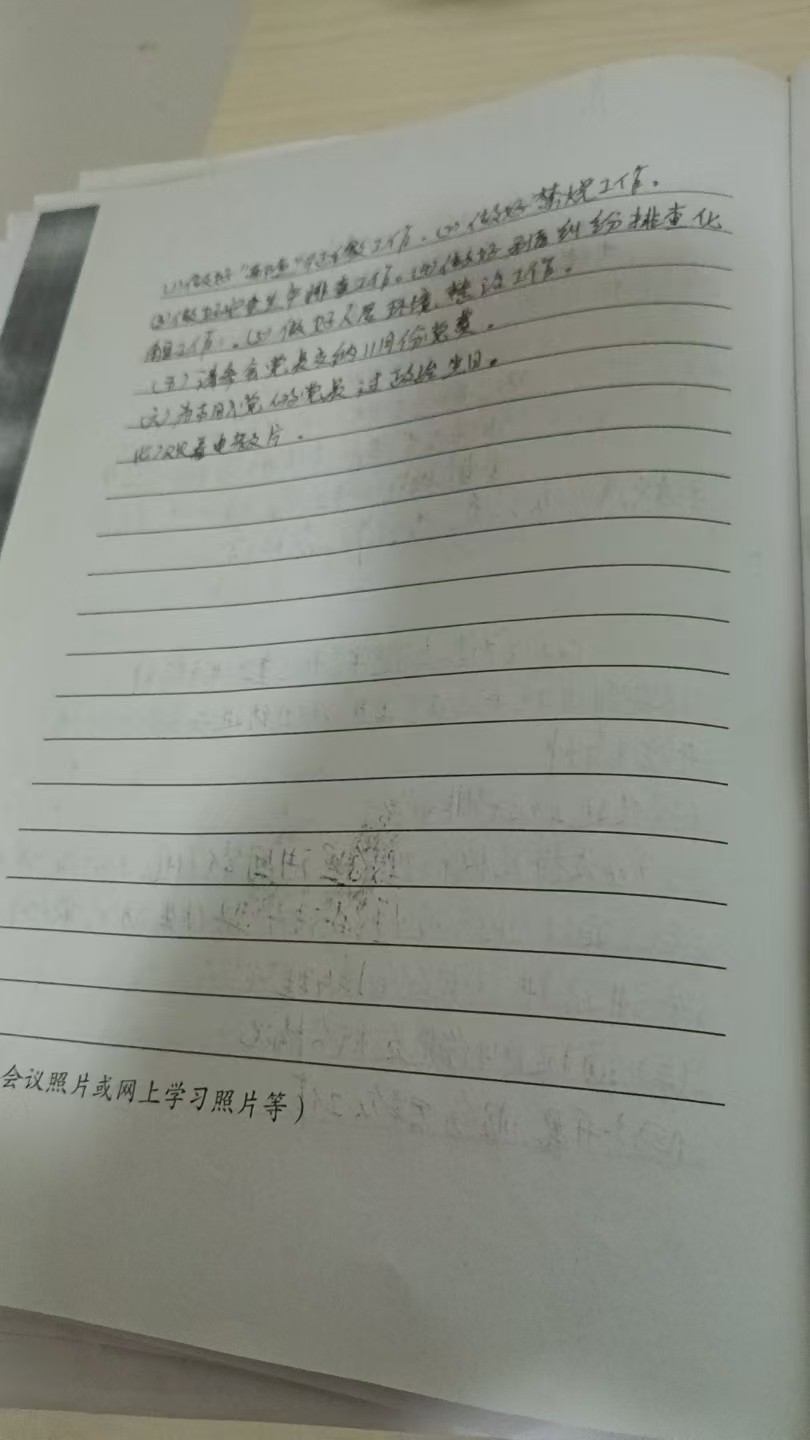 (1)做好“”工作。(2)做好禁烧工作。
(3)做好安全生产排查工作。(4)做好矛盾纠纷排查化
解工作。(5)做好人居环境建设工作。
(五)请参会党员交纳11月份党费。
(六)为本月入党的党员过政治生日。
(七)观看电教片。
会议照片或网上学习照片等)